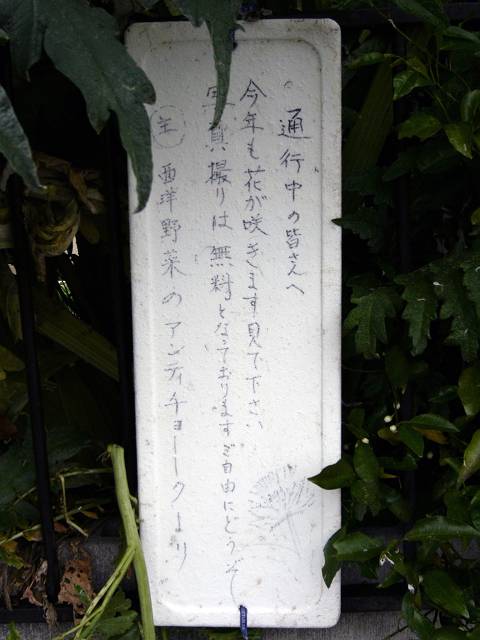 通行中の皆さんへ
今年も花が咲きます見て下さい
写真撮りは無料となっておりますご自由にどうぞ
主 西洋野菜のアンティチョークより